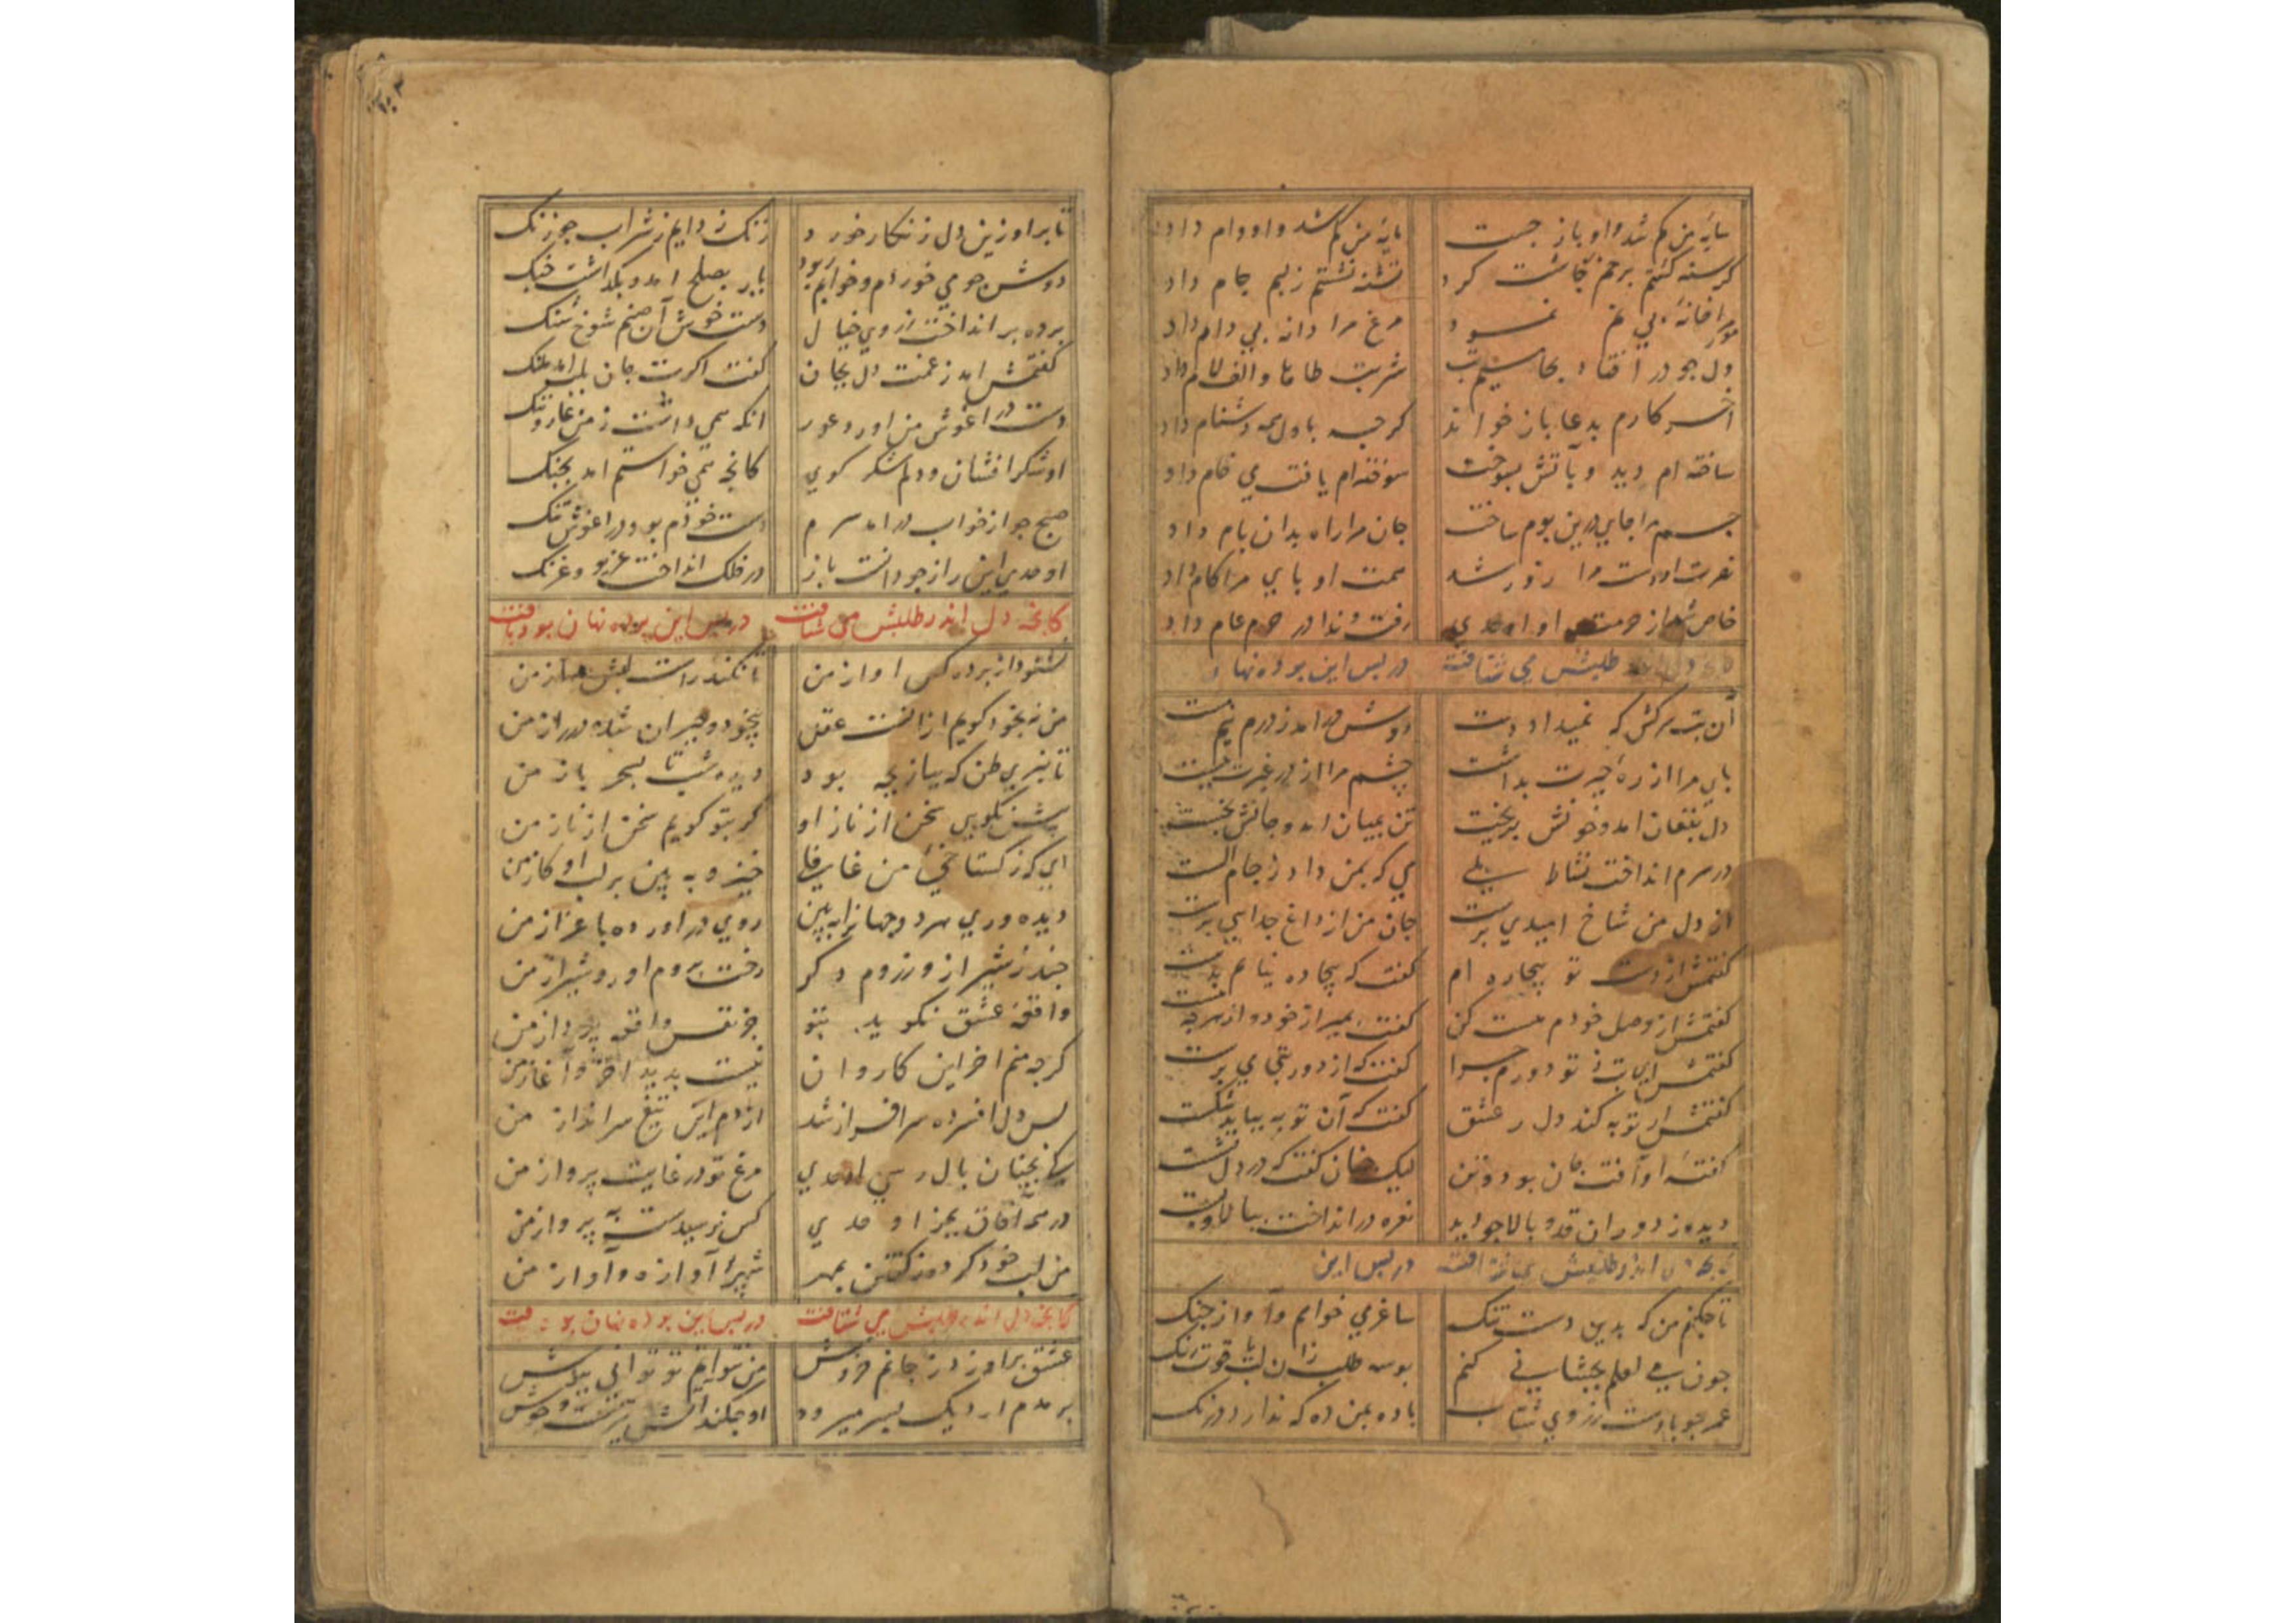 سایه من کم شد و او باز جست مایه من کم شد و او وام داد
کرسنه کشتم برهم چاشت کرد تشنه نشستم زیم جام داد
مور مرا خانه بی غم نمود مرغ مرا دانه بی دام داد
دل جو در افتاد شربت طاها والف لام داد
اخر کارم بدعا باز خواند کرجه باول همه دشنام داد
ساخته ام دید و بآتش بسوخت سوخته ام یافت می خام داد
جسم مرا جای درین بوم ساخت جان مرا راه بدان بام داد
نصرت او دست مرا زور شد همت او بای مرا کام داد
خاص شد از حرمت او اوحدی رفت و ندا در حرم عام داد
طلبش می شتافت در بس این برده نهان
آن بت سرکش که نمیداد دست دوش در امد ز درم نیم مست
بای مرا از ره حیرت بداشت چشم مرا از در غیرت ببست
دل بفغان امد و خونش بریخت تن بمیان امد و جانش بخست
در سرم انداخت نشاط بلی می که بمن داد ز جام الست
از دل من شاخ امیدی برست جان من از داغ جدایی برست
کفتمش از دست تو بیچاره ام کفت که بیچاره نیاید بدست
کفتمش از وصل خودم مست کن کفت بمیر از خود و از هرجه هست
کفتمش ای بت ز تو دورم جرا کفت که از دور بتجای برست
کفتمش ار توبه کند دل ز عشق کفت که آن توبه بباید شکست
کفته او آفت جان بود و تن لیک جنان کفت که در دل نشست
دیده ز دوران قد و بالا جو دید نعره در انداخت ببالا و بست
اندر طلبش می شتافت در بس این
تا جکنم من که بدین دست تنک ساغر می خواهم و آواز جنک
جون بمی لعلم بجشانی کنم بوسه طلب زان لب یاقوت رنک
عمر جو بادست ز روی شتاب باده بمن ده که ندارد درنک
تا برد او زین دل زنکار خورد زنک زدایم ز شراب جو زنک
دوش جو می خوردم و خوابم ربود یار بصلح امد و بکذاشت جنک
برده بر انداخت ز روی خیال دست خوش آن صنم شوخ شنک
کفتمش امد ز غمت دل بجان کفت اکرت جان بلب امد ملنک
دست در اغوش من اورد و عور انکه همی داشت ز من عار و ننک
او شکر افشان و دلم شکر کوی کانجه همی خواستم امد بجنک
صبح جو از خواب در امد سرم دست خودم بود در اغوش تنک
اوحدی این راز جو دانست باز در فلک انداخت غریو و غرنک
کانجه دل اندر طلبش می شتافت در بس این برده نهان بود یافت
نشنود از برده کس اواز من تا نکند راست لبش ساز من
من نه بخود کویم از انست عقل بیخود و حیران شده در راز من
تا نبری ظن که ببازیجه بود دیده شب تا بسحر باز من
بیش نکویی سخن از ناز او کر بتو کویم سخن از ناز من
ای که ز کستاخی من غافلی خیز و ببین بر لب او کاز من
دیده وری هر دو جهانرا ببین روی در اورده باعزاز من
جند ز شیراز و ز روم دکر رخت بروم اور و شیراز من
واقعه عشق نکوید بتو جز نفس واقعه برداز من
کرجه منم اخر این کاروان نیست بدید اخر و آغاز من
بس دل افسرده سرافراز شد از دم این تیغ سرانداز من
کی بجنان بال رسی اوحدی مرغ تو در غایت پرواز من
در همه آفاق بجز اوحدی کس نرسیدست به پرواز من
من لب خود کرده ز کفتن بمهر شهر بر آوازه و آواز من
کانجه دل اندر طلبش می شتافت در بس این برده نهان بود یافت
عشق براورد ز جانم خروش من نتوانم تو توانی بپوش
هر دم ار دیک بسر میرود او جکند آتش تیزست و جوش